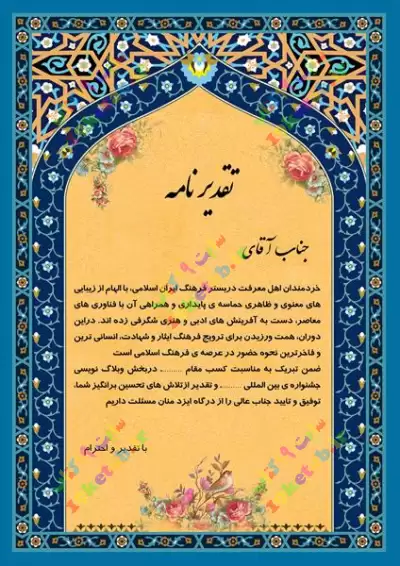 تقدیر نامه
جناب آقای
خردمندان اهل معرفت دربستر فرهنگ ایران اسلامی، با الهام از زیبایی
های معنوی و ظاهری حماسه ی پایداری و همراهی آن با فناوری های
معاصر، دست به آفرینش های ادبی و هنری شگرفی زده اند. دراین
دوران، همت ورزیدن برای ترویج فرهنگ ایثار و شهادت، انسانی ترین
و فاخرترین نحوه حضور در عرصه ی فرهنگ اسلامی است
ضمن تبریک به مناسبت کسب مقام ......... دربخش وبلاگ نویسی
جشنواره ی بین المللی ......... و تقدیر ازتلاش های تحسین برانگیز شما،
توفیق و تایید جناب عالی را از درگاه ایزد منان مسئلت داریم
با تقدیر و احترام